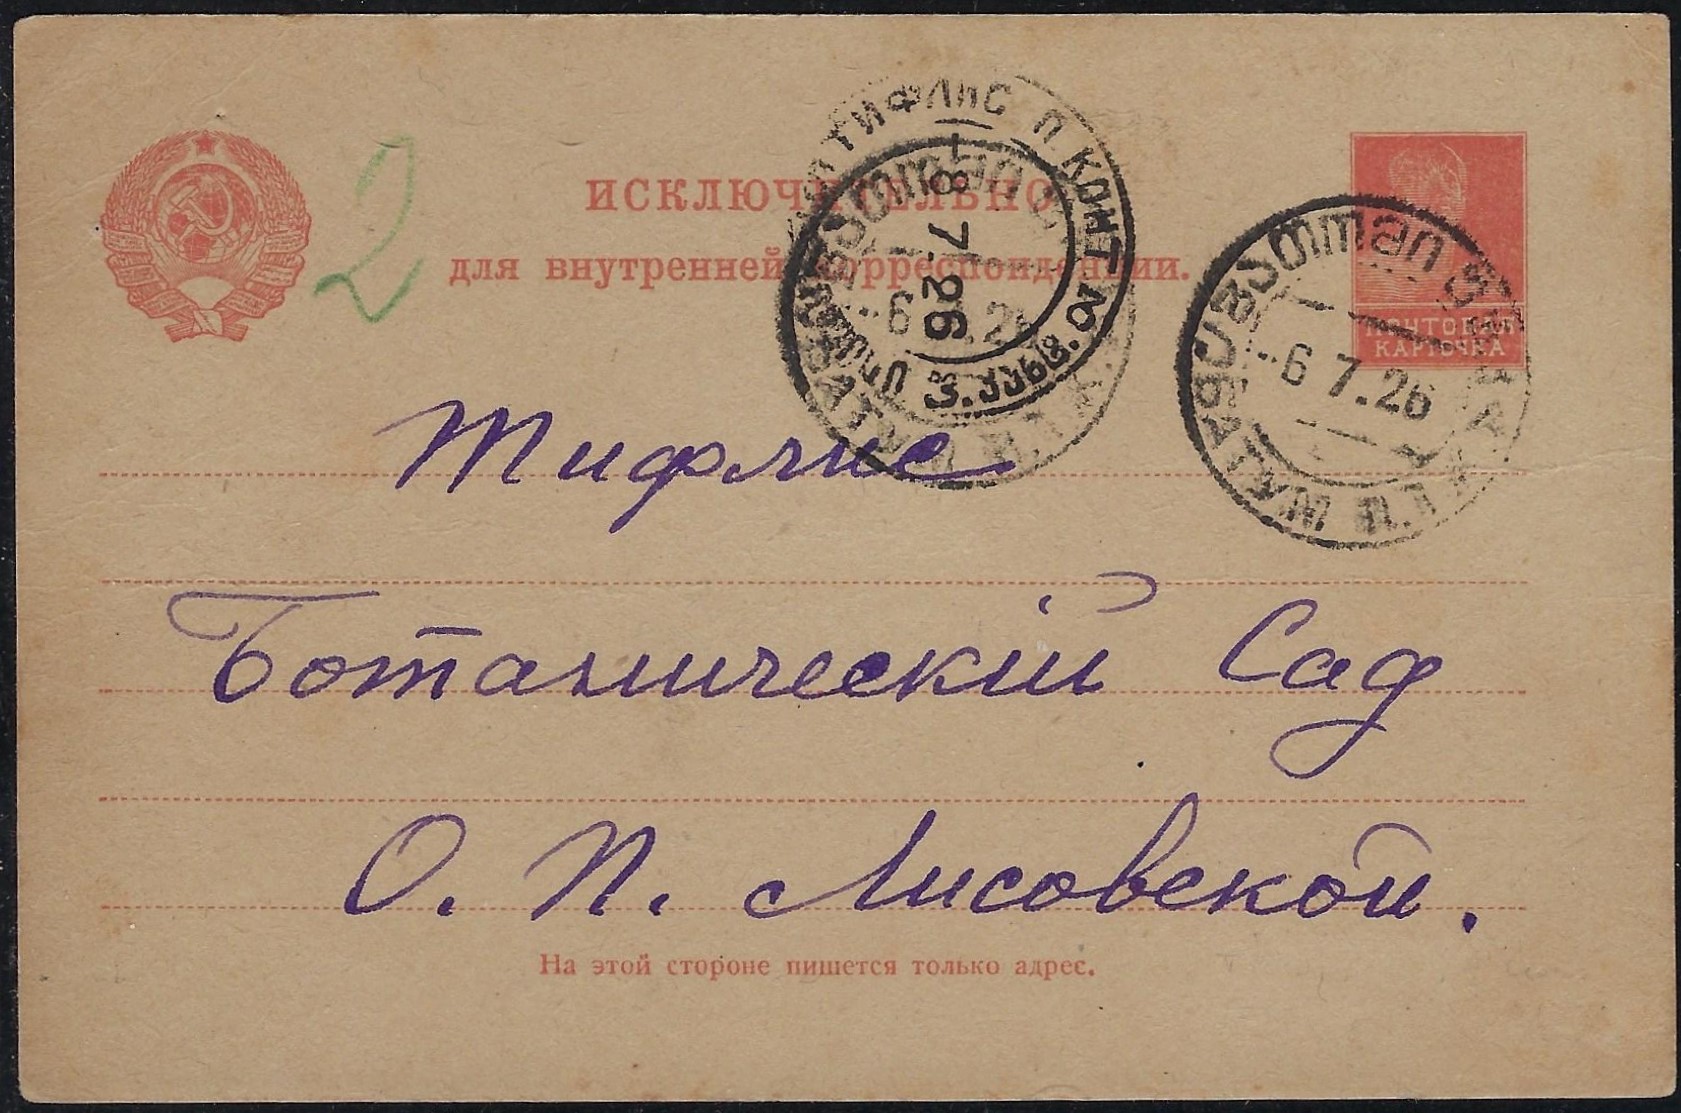 ИСКЛЮЧИТЕЛЬНО
для внутренней корреспонденции.
2
ТИФЛИС П. КОНТ
8 7.26
-6 7.26
-6 7.26
ПОЧТОВАЯ
КАРТОЧКА
Тифлис
Ботанический Сад
О. П. Лисовской.
На этой стороне пишется только адрес.